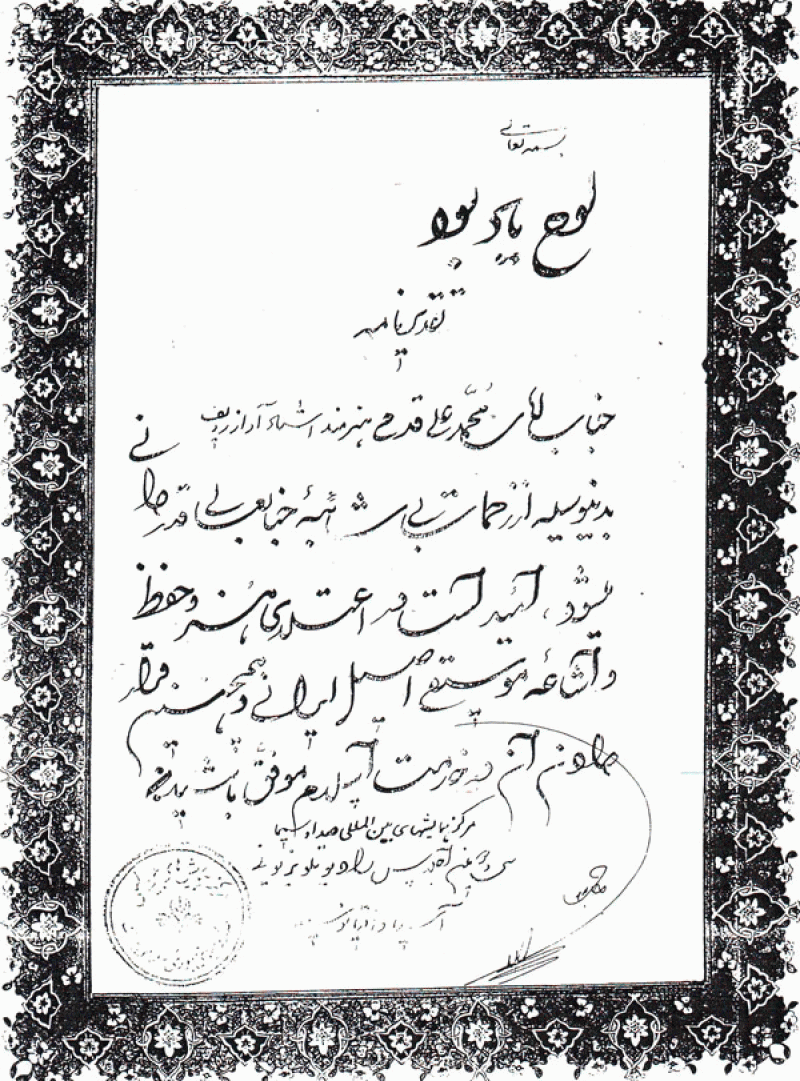 بسمه تعالی
لوح یادبود
تقدیرنامه
جناب آقای محمد علی قدمی هنرمند آواز ردیف
بدینوسیله از زحمات بی شائبهٔ جنابعالی قدردانی
میشود، امید است در اعتلای هنر و حفظ
و اشاعهٔ موسیقی اصیل ایرانی و همچنین قرار
دادن آن در خدمت اسلام موفق باشید
مرکز همایشهای بین المللی صدا و سیما
رادیو تلویزیونی